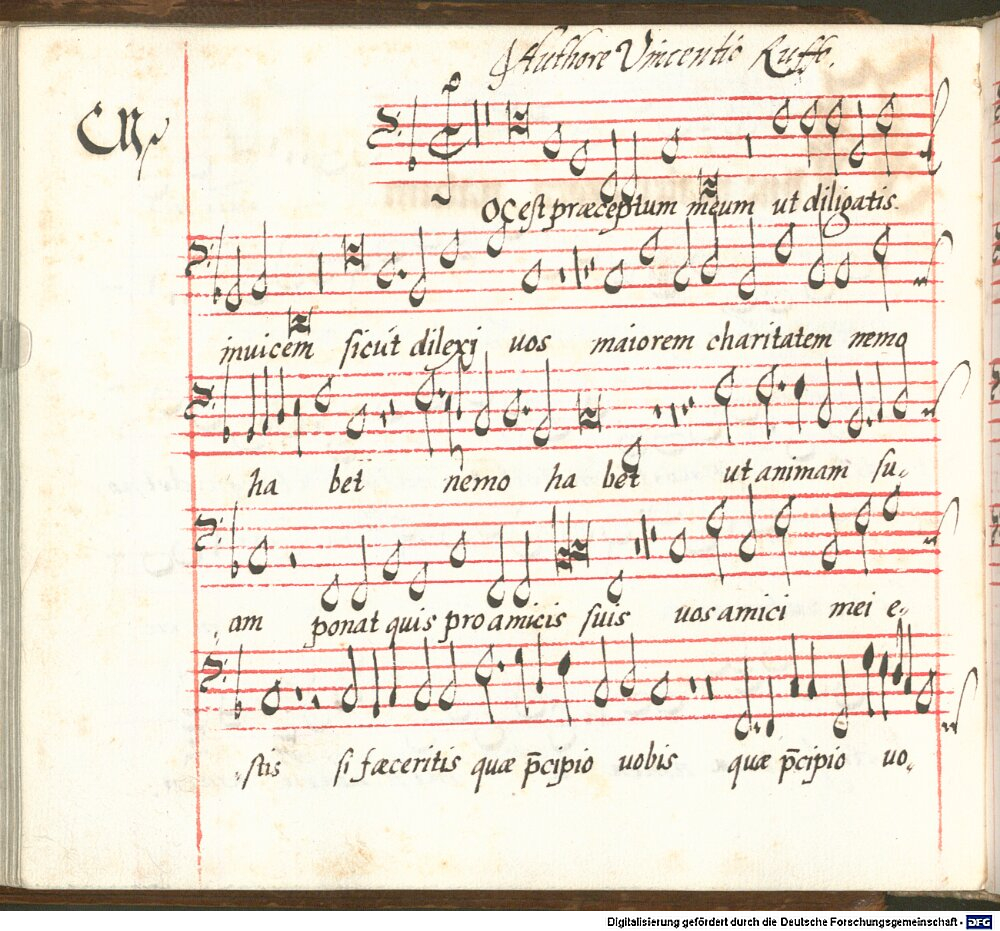 Authore Vincentio Ruffo.
OC est præceptum meum ut diligatis.
inuicem sicut dilexi uos maiorem charitatem nemo
ha bet nemo ha bet ut animam su„
am ponat quis pro amicis suis uos amici mei e„
„stis si fæceritis quæ p̄cipio uobis quæ p̄cipio uo„
Digitalisierung gefördert durch die Deutsche Forschungsgemeinschaft - DFG